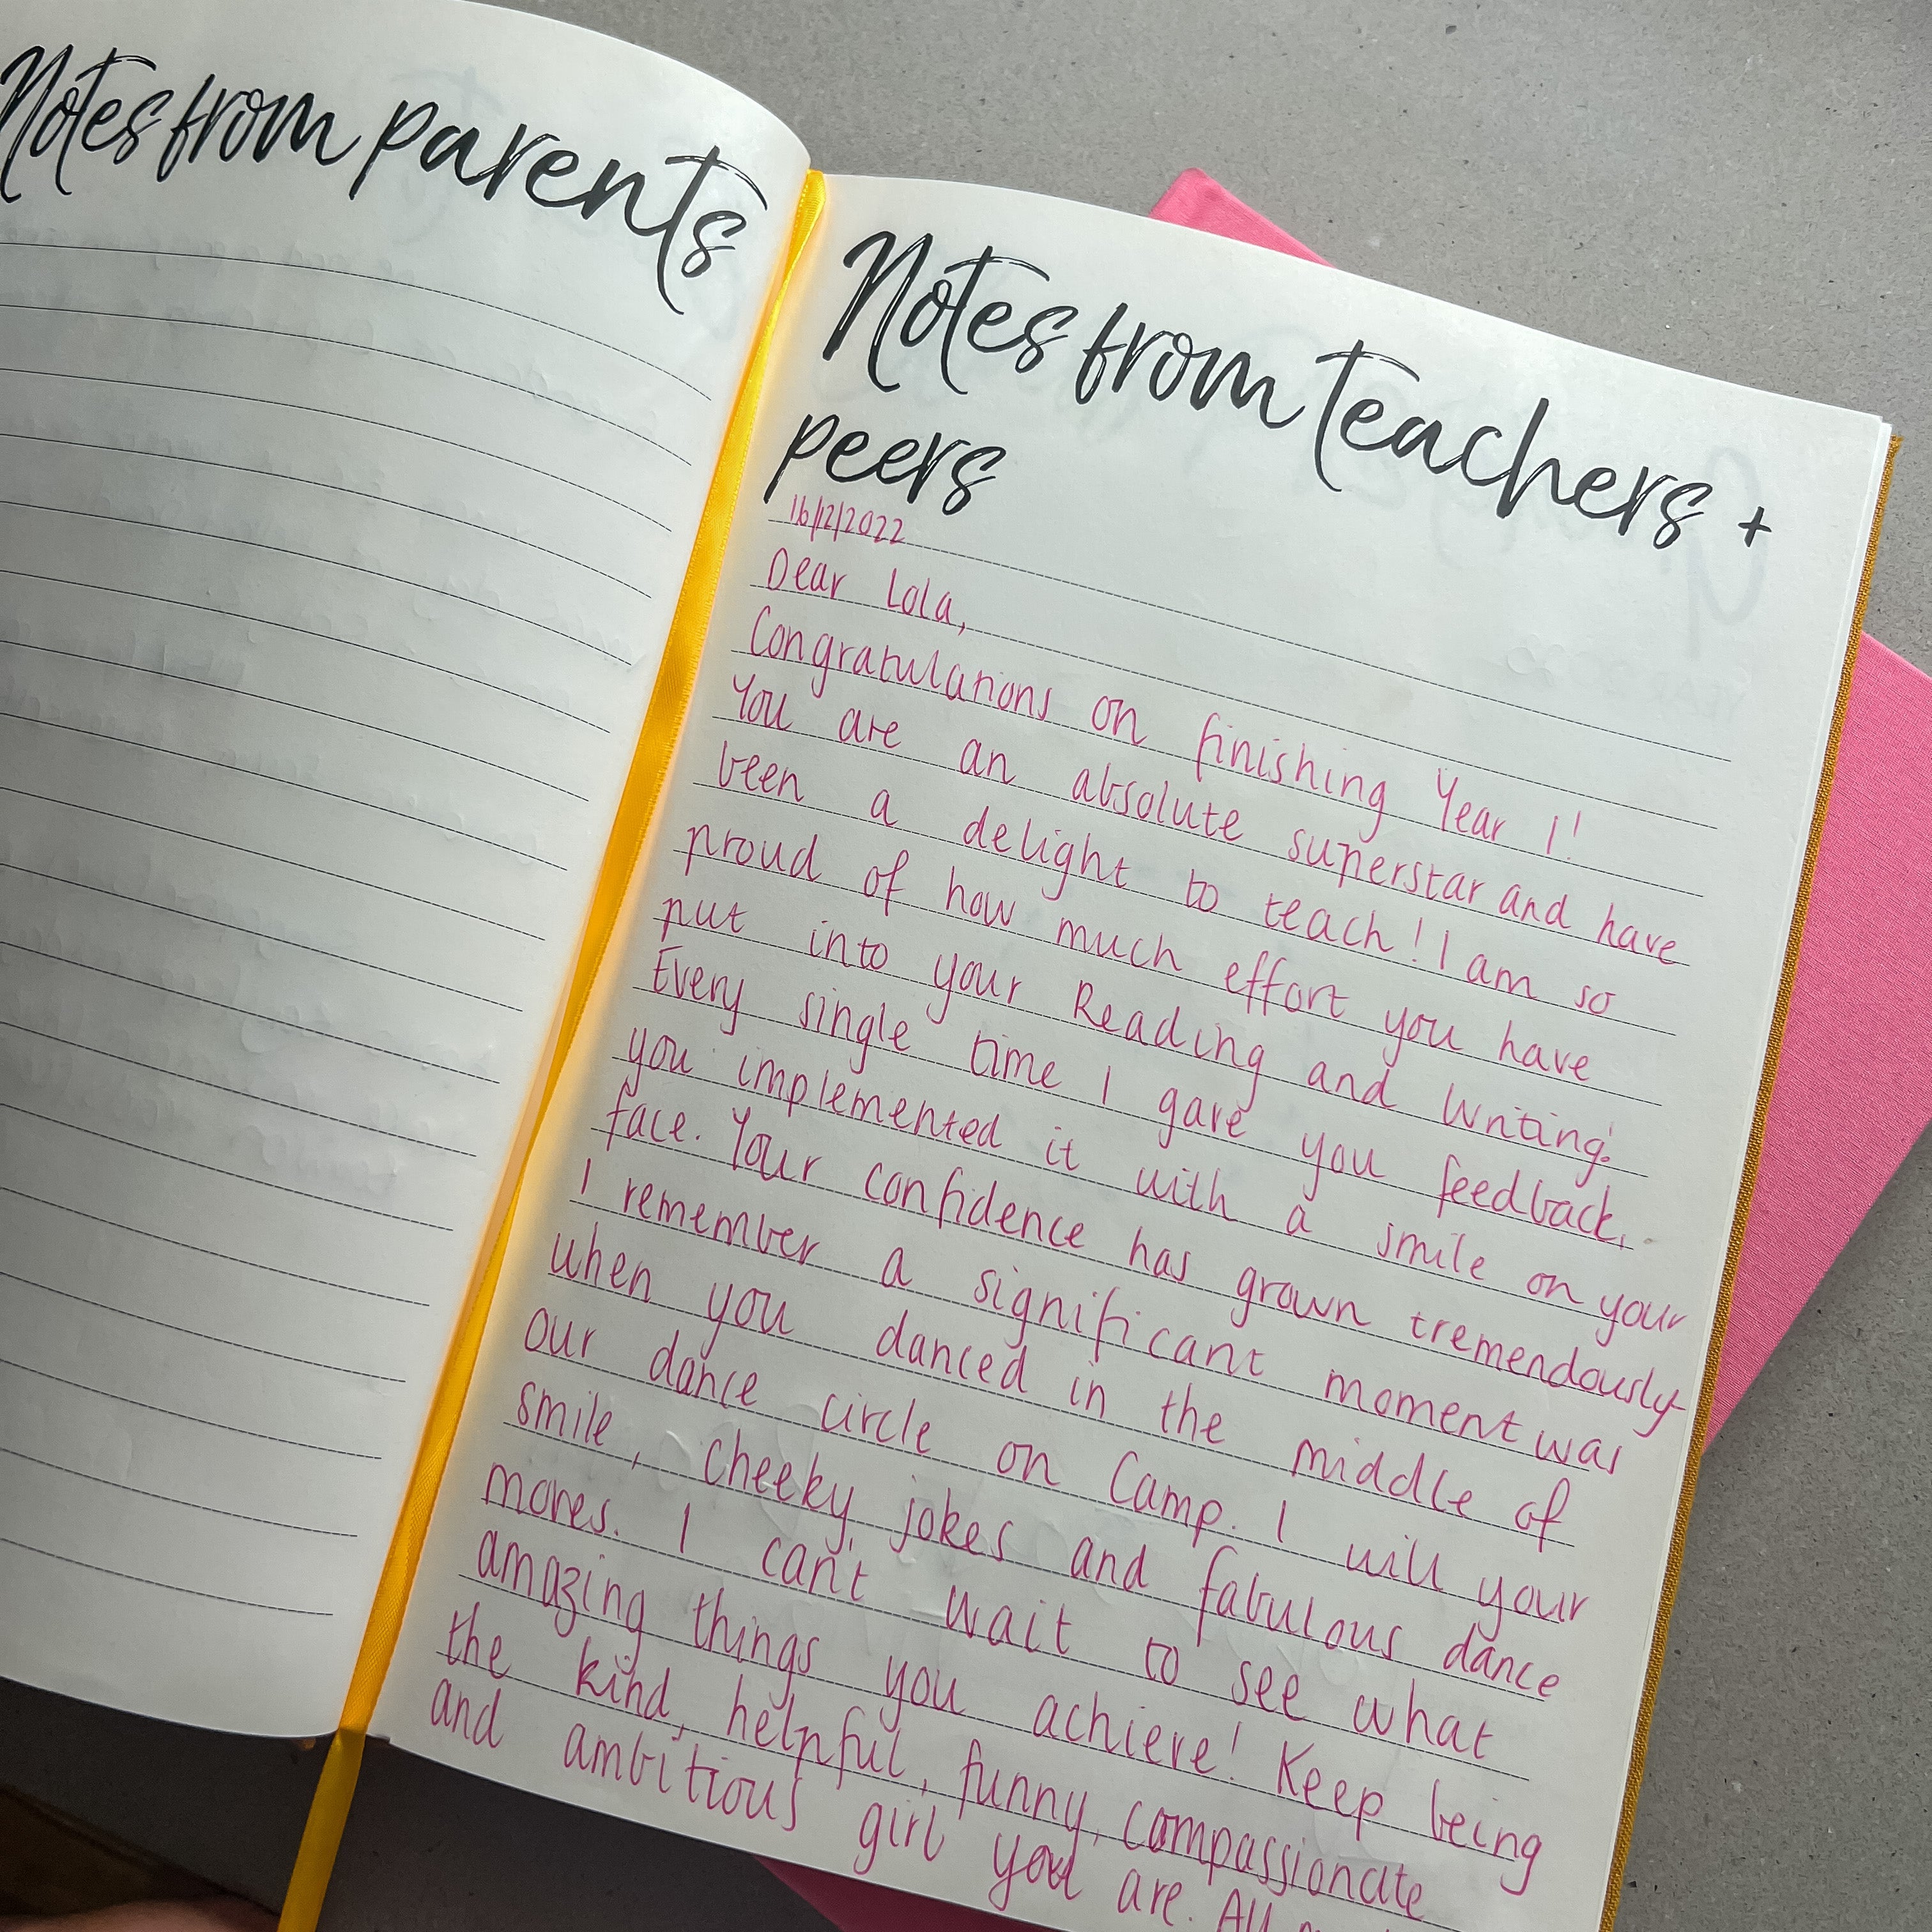 Notes from parents
Notes from teachers +
peers
16/12/2022
Dear Lola,
Congratulations on finishing Year 1!
You are an absolute superstar and have
been a delight to teach! I am so
proud of how much effort you have
put into your Reading and Writing!
Every single time I gave you feedback,
you implemented it with a smile on your
face. Your confidence has grown tremendously
I remember a significant moment was
when you danced in the middle of
our dance circle on Camp. I will your
smile, cheeky jokes and fabulous dance
moves. I can't wait to see what
amazing things you achieve! Keep being
the kind, helpful, funny, compassionate
and ambitious girl you are. All